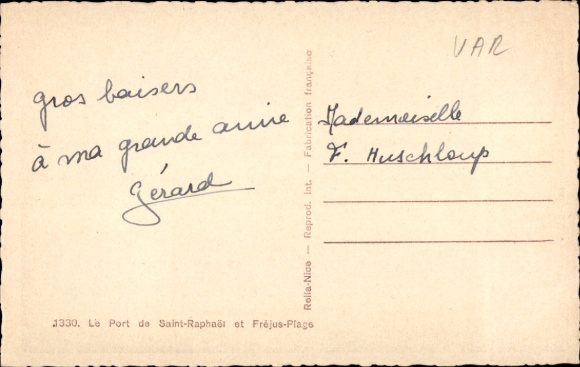 VAR
gros baisers
à ma grande amie
Gérard
Mademoiselle
F. Huschloup
Rella-Nice — Reprod. Int. — Fabrication française
1330. Le Port de Saint-Raphaël et Fréjus-Plage